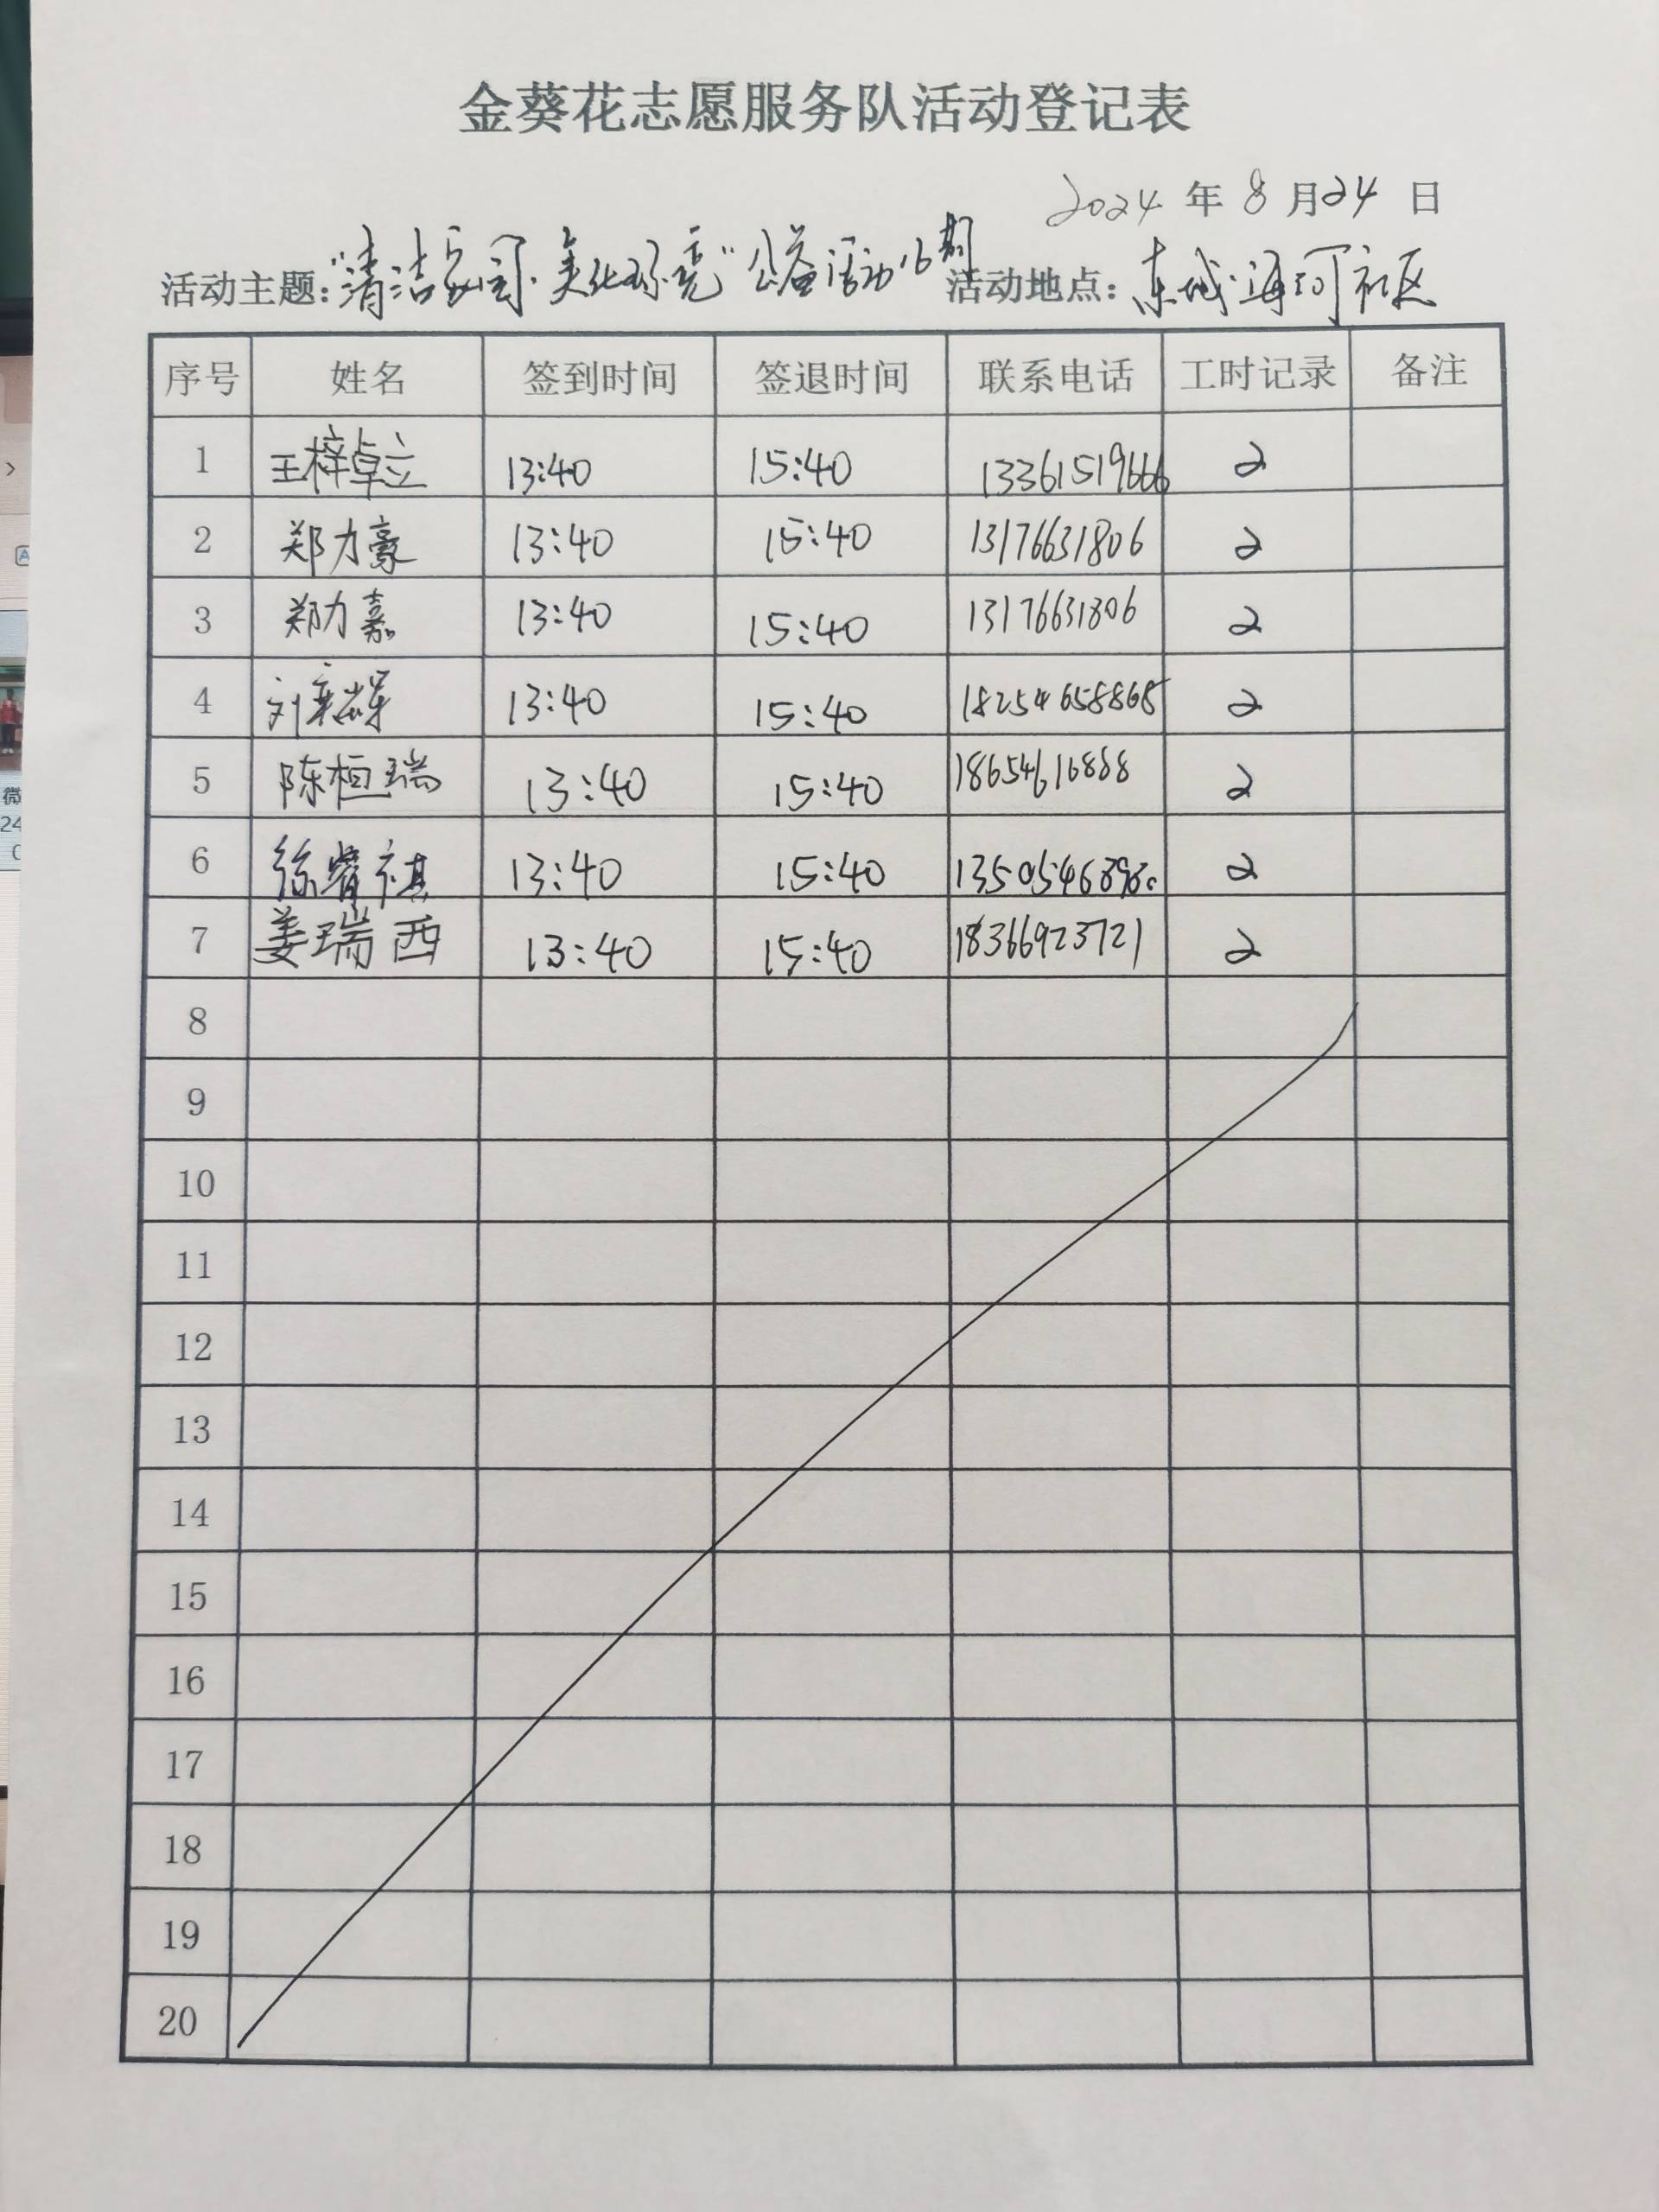 金葵花志愿服务队活动登记表
2024 年 8 月 24 日
活动主题:"清洁家园·美化环境"公益活动16期 活动地点:东城海河社区
序号 姓名 签到时间 签退时间 联系电话 工时记录 备注
1 王梓卓立 13:40 15:40 13361519666 2
2 郑力豪 13:40 15:40 13176631806 2
3 郑力嘉 13:40 15:40 13176631806 2
4 刘 13:40 15:40 18254658868 2
5 陈桓瑞 13:40 15:40 18654616888 2
6 徐 祺 13:40 15:40 2
7 姜瑞西 13:40 15:40 18366923721 2
8
9
10
11
12
13
14
15
16
17
18
19
20
微
24